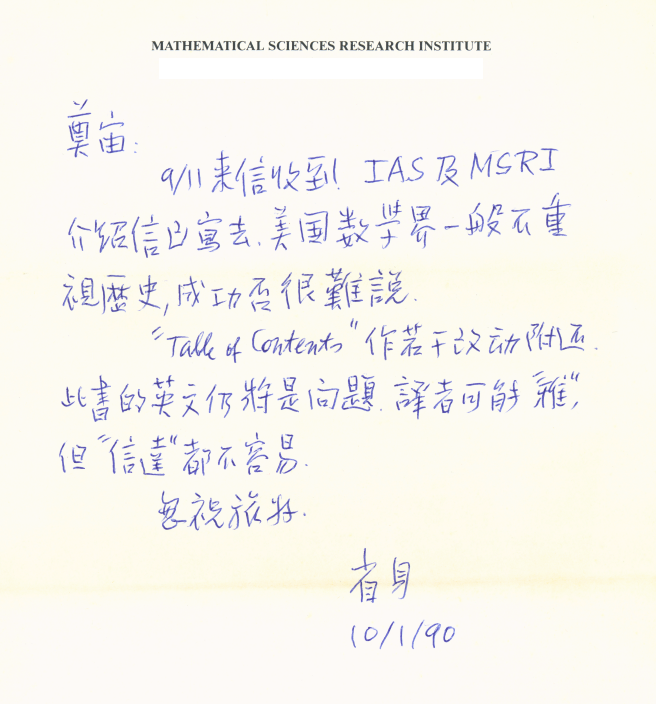 MATHEMATICAL SCIENCES RESEARCH INSTITUTE
奠宙:
9/11 来信收到. IAS 及 MSRI
介紹信已寫去. 美国数學界一般不重
視歷史, 成功否很難説.
"Table of Contents" 作若干改动附还.
此書的英文仍將是问題. 譯者可能"雅",
但"信達"都不容易.
祝旅好.
省身
10/1/90